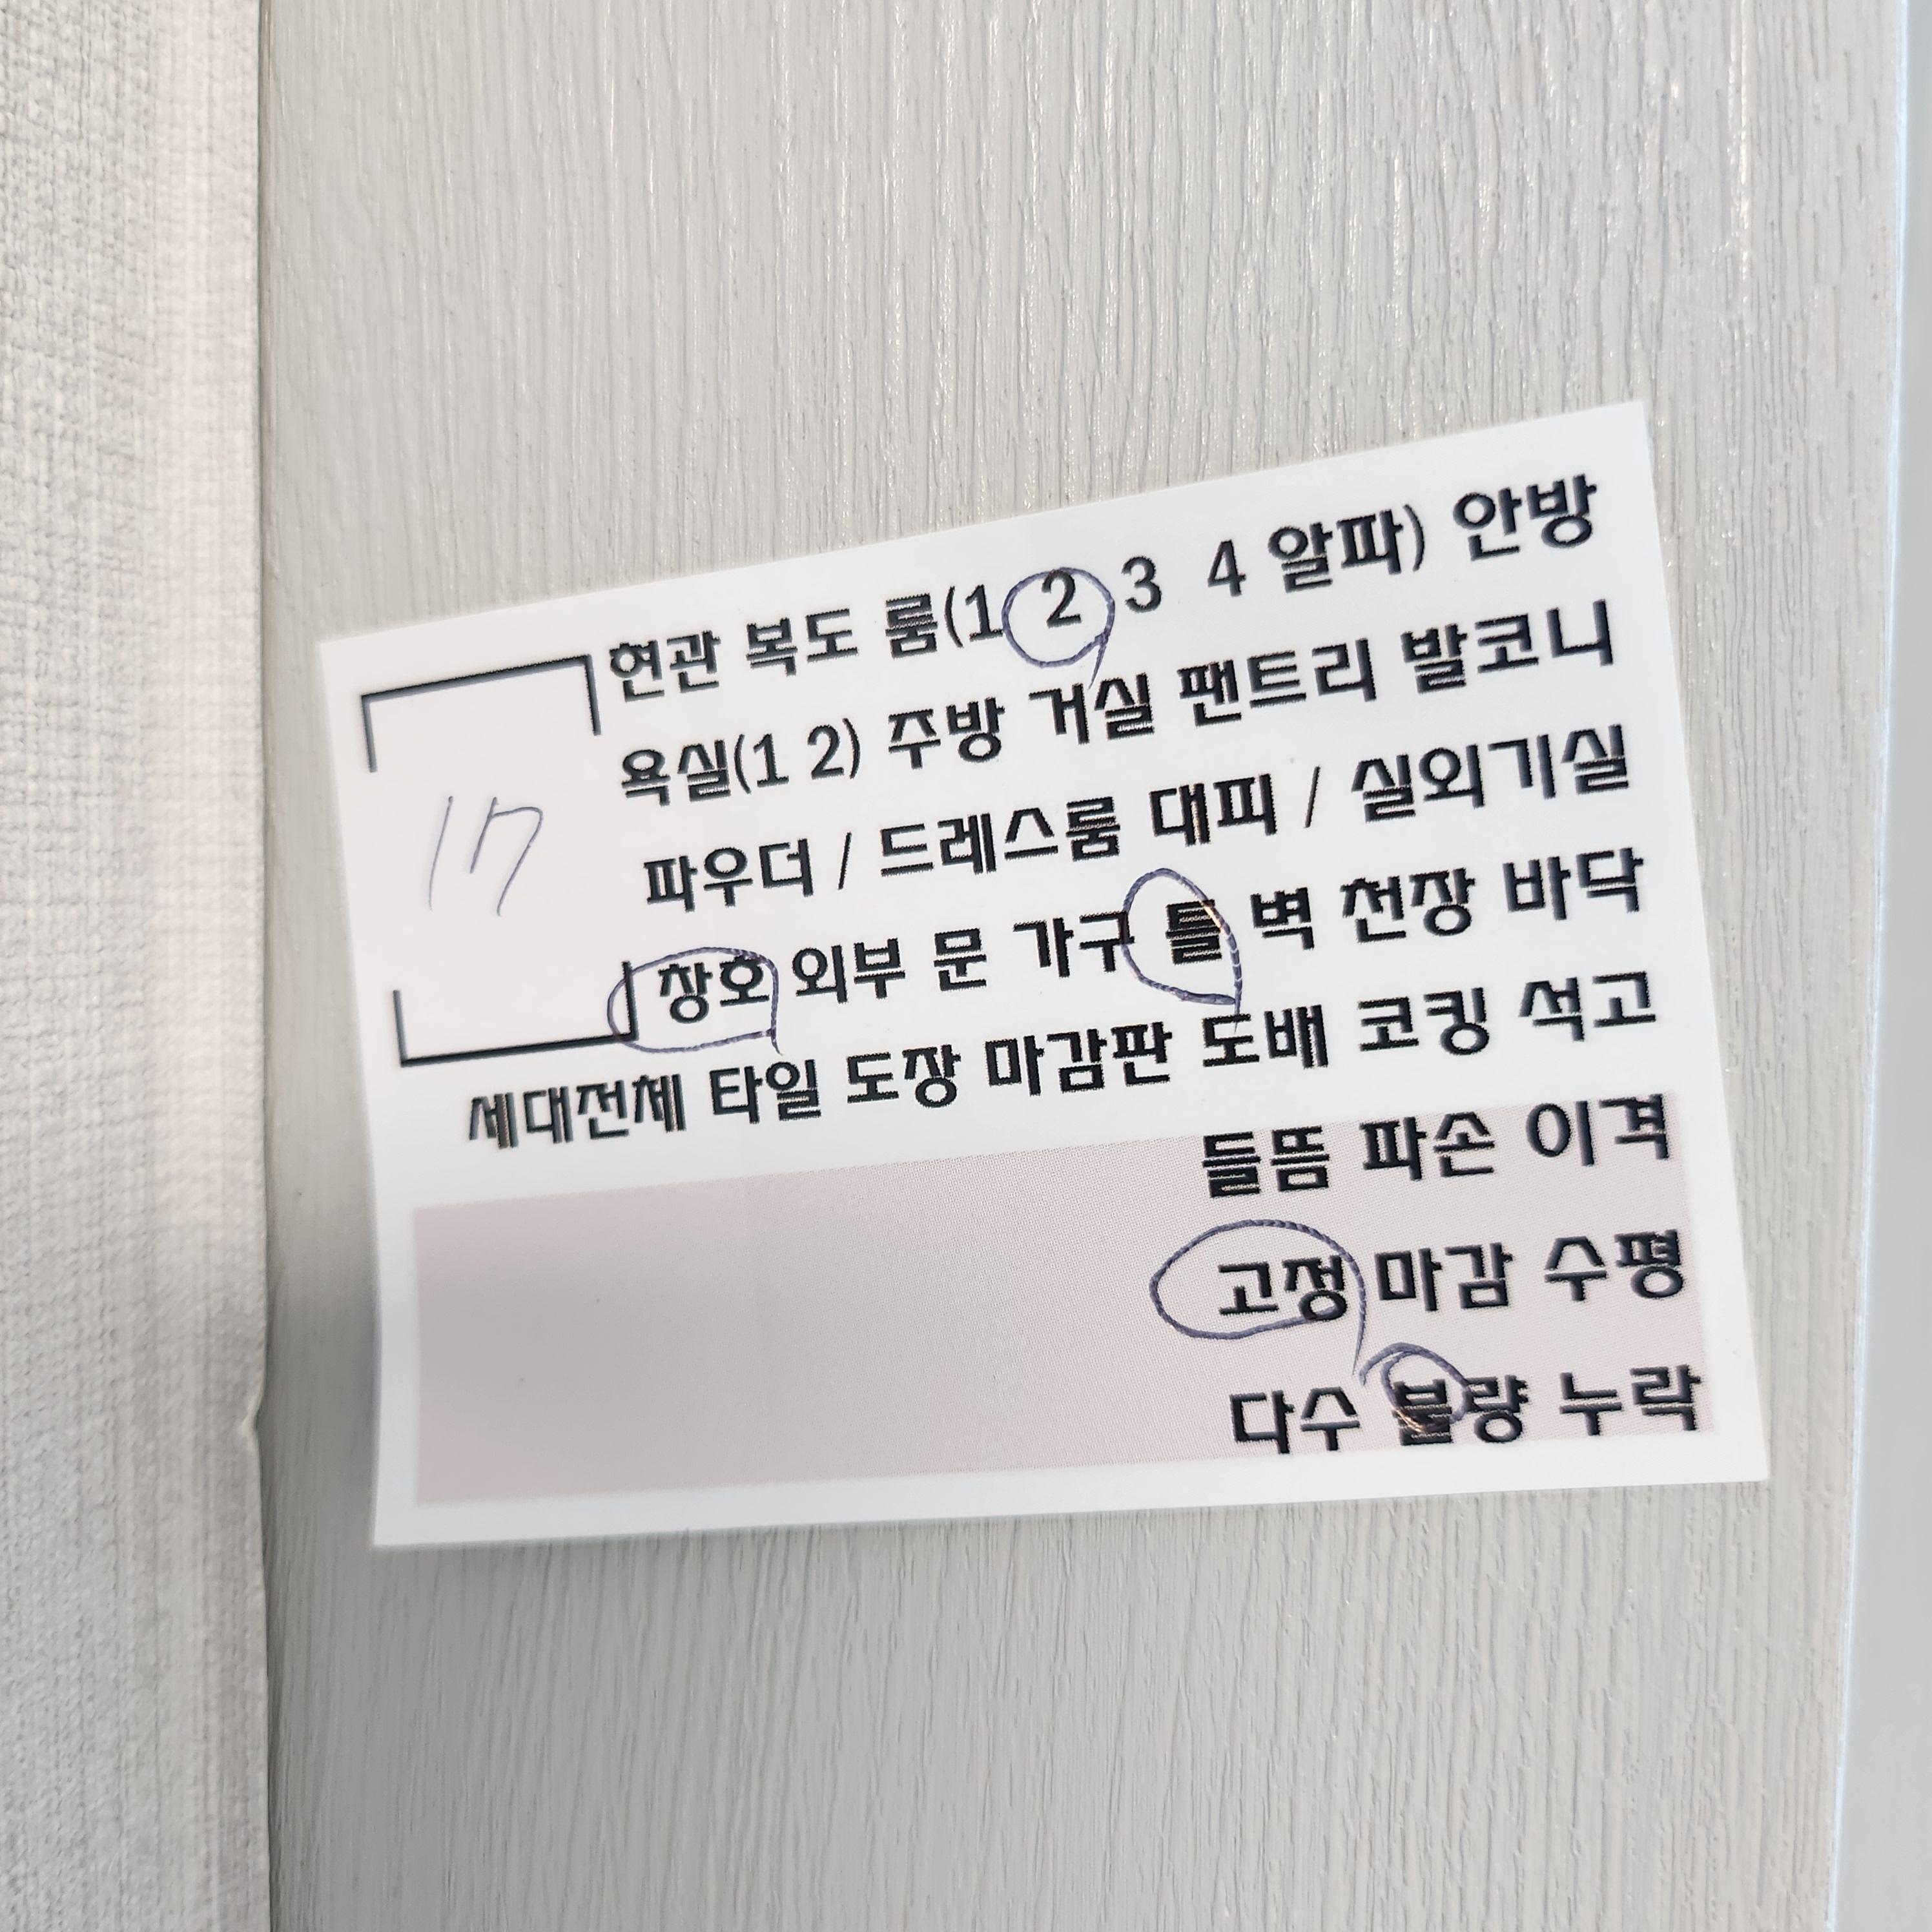 현관 복도 룸(1 2 3 4 알파) 안방
욕실(1 2) 주방 거실 팬트리 발코니
17
파우더 / 드레스룸 대피 / 실외기실
창호 외부 문 가구 틀 벽 천장 바닥
세대전체 타일 도장 마감판 도배 코킹 석고
들뜸 파손 이격
고정 마감 수평
다수 불량 누락